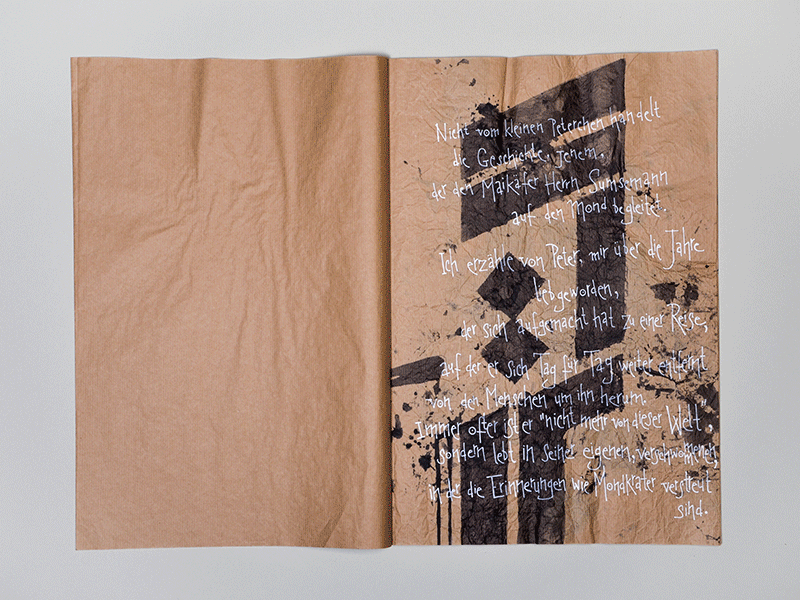 Nicht vom kleinen Peterchen handelt
die Geschichte, jenem,
der den Maikäfer Herrn Sumsemann
auf den Mond begleitet.
Ich erzähle von Peter, mir über die Jahre
liebgeworden,
der sich aufgemacht hat zu einer Reise,
auf der er sich Tag für Tag weiter entfernt
von den Menschen um ihn herum.
Immer öfter ist er "nicht mehr von dieser Welt",
sondern lebt in seiner eigenen, verschwommenen,
in der die Erinnerungen wie Mondkrater verstreut
sind.